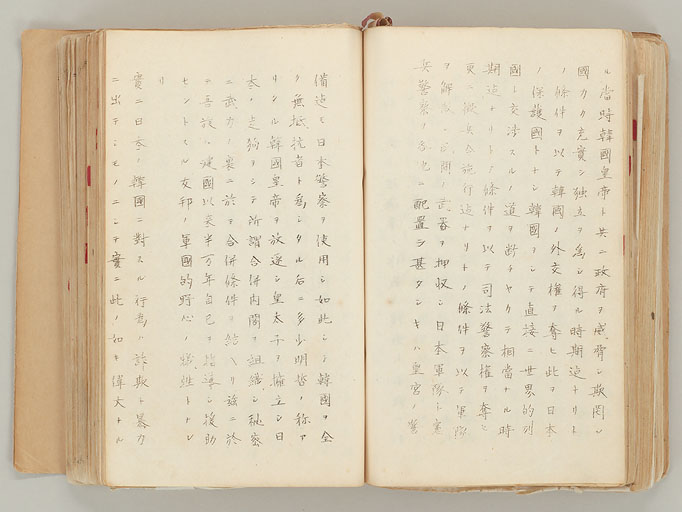 ル當時韓國皇帝ト共ニ政府ヲ威脅シ欺罔シ
國力ノ充實シ独立ヲ為シ得ル時期迄ナリト
ノ條件ヲ以テ韓國ノ外交權ヲ奪ヒ此ヲ日本
ノ保護國トナシ韓國ヲシテ直接ニ世界的列
國ト交渉スルノ道ヲ断チ相當ナル時
期迄ナリトノ條件ヲ以テ司法警察權ヲ奪シ
更ニ徴兵令施行迄ナリトノ條件ヲ以テ軍隊
ヲ解散シ民間ノ武器ヲ押収シ日本軍隊ト憲
兵警察ヲ各地ニ配置シ甚タシキハ皇宮ノ警
備迄モ日本警察ヲ使用シ如此シテ韓國ヲ全
ク無抵抗者ト為シタル后ニ多少明哲ノ称ア
リシ韓國皇帝ヲ放逐シ皇太子ヲ擁立シ日
本ノ走狗ヲシテ所謂合併内閣ヲ組織シ秘密
ニ武力ノ裏ニ於テ合併條件ヲ結ヘリ茲ニ於
テ吾族ハ建國以来半万年自己ヲ指導シ援助
セントスル友邦ノ軍國的野心ノ犠牲トナレ
リ
實ニ日本ノ韓國ニ對スル行為ハ詐欺ト暴力
ニ出テシモノニシテ實ニ此ノ如キ偉大ナル